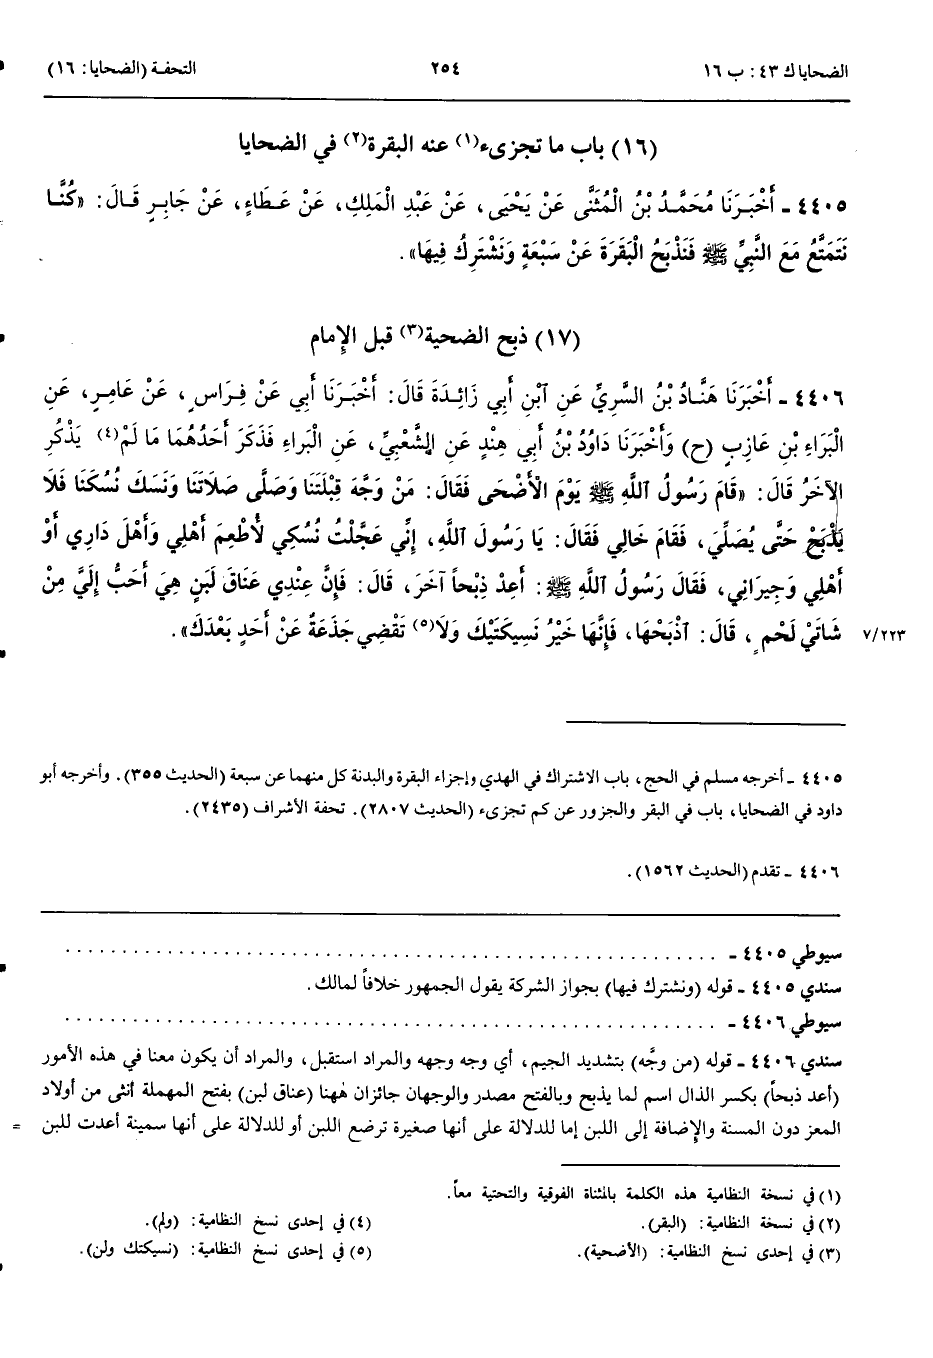 الضحايا ك ٤٣: ب ١٦
٢٥٤
التحفة (الضحايا: ١٦)
(١٦) باب ما تجزىء(١) عنه البقرة(٢) في الضحايا
٤٤٠٥ ـ أَخْبَرَنَا مُحَمَّدُ بْنُ الْمُثَنَّى عَنْ يَحْيَى، عَنْ عَبْدِ الْمَلِكِ، عَنْ عَطَاءٍ، عَنْ جَابِرٍ قَالَ: «كُنَّا
نَتَمَتَّعُ مَعَ النَّبِيِّ ﷺ فَنَذْبَحُ الْبَقَرَةَ عَنْ سَبْعَةٍ وَنَشْتَرِكُ فِيهَا».
(١٧) ذبح الضحية(٣) قبل الإمام
٤٤٠٦ ـ أَخْبَرَنَا هَنَّادُ بْنُ السَّرِيِّ عَنِ ٱبْنِ أَبِي زَائِدَةَ قَالَ: أَخْبَرَنَا أَبِي عَنْ فِرَاسٍ، عَنْ عَامِرٍ، عَنِ
الْبَرَاءِ بْنِ عَازِبٍ (ح) وَأَخْبَرَنَا دَاوُدُ بْنُ أَبِي هِنْدٍ عَنِ الشَّعْبِيِّ، عَنِ الْبَرَاءِ فَذَكَرَ أَحَدُهُمَا مَا لَمْ(٤) يَذْكُرِ
الآخَرُ قَالَ: «قَامَ رَسُولُ اللَّهِ ﷺ يَوْمَ الأَضْحَى فَقَالَ: مَنْ وَجَّهَ قِبْلَتَنَا وَصَلَّى صَلاَتَنَا وَنَسَكَ نُسُكَنَا فَلاَ
يَذْبَحْ حَتَّى يُصَلِّيَ، فَقَامَ خَالِي فَقَالَ: يَا رَسُولَ اللَّهِ، إِنِّي عَجَّلْتُ نُسُكِي لأُطْعِمَ أَهْلِي وَأَهْلَ دَارِي أَوْ
أَهْلِي وَجِيرَانِي، فَقَالَ رَسُولُ اللَّهِ ﷺ: أَعِدْ ذِبْحاً آخَرَ، قَالَ: فَإِنَّ عِنْدِي عَنَاقَ لَبَنٍ هِيَ أَحَبُّ إِلَيَّ مِنْ
شَاتَيْ لَحْمٍ، قَالَ: ٱذْبَحْهَا، فَإِنَّهَا خَيْرُ نَسِيكَتَيْكَ وَلاَ(٥) تَقْضِي جَذَعَةٌ عَنْ أَحَدٍ بَعْدَكَ».
٧/٢٢٣
٤٤٠٥ ـ أخرجه مسلم في الحج، باب الاشتراك في الهدي وإجزاء البقرة والبدنة كل منهما عن سبعة (الحديث ٣٥٥). وأخرجه أبو
داود في الضحايا، باب في البقر والجزور عن كم تجزىء (الحديث ٢٨٠٧). تحفة الأشراف (٢٤٣٥).
٤٤٠٦ ـ تقدم (الحديث ١٥٦٢).
سيوطي ٤٤٠٥ ـ . . . . . . . . . . . . . . . . . . . .
سندي ٤٤٠٥ ـ قوله (ونشترك فيها) بجواز الشركة يقول الجمهور خلافاً لمالك.
سيوطي ٤٤٠٦ ـ . . . . . . . . . . . . . . . . . . . .
سندي ٤٤٠٦ ـ قوله (من وجَّه) بتشديد الجيم، أي وجه وجهه والمراد استقبل، والمراد أن يكون معنا في هذه الأمور
(أعد ذبحاً) بكسر الذال اسم لما يذبح وبالفتح مصدر والوجهان جائزان هٰهنا (عناق لبن) بفتح المهملة أنثى من أولاد
المعز دون المسنة والإضافة إلى اللبن إما للدلالة على أنها صغيرة ترضع اللبن أو للدلالة على أنها سمينة أعدت للبن =
(١) في نسخة النظامية هذه الكلمة بالمثناة الفوقية والتحتية معاً.
(٢) في نسخة النظامية: (البقر).
(٣) في إحدى نسخ النظامية: (الأضحية).
(٤) في إحدى نسخ النظامية: (ولم).
(٥) في إحدى نسخ النظامية: (نسيكتك ولن).